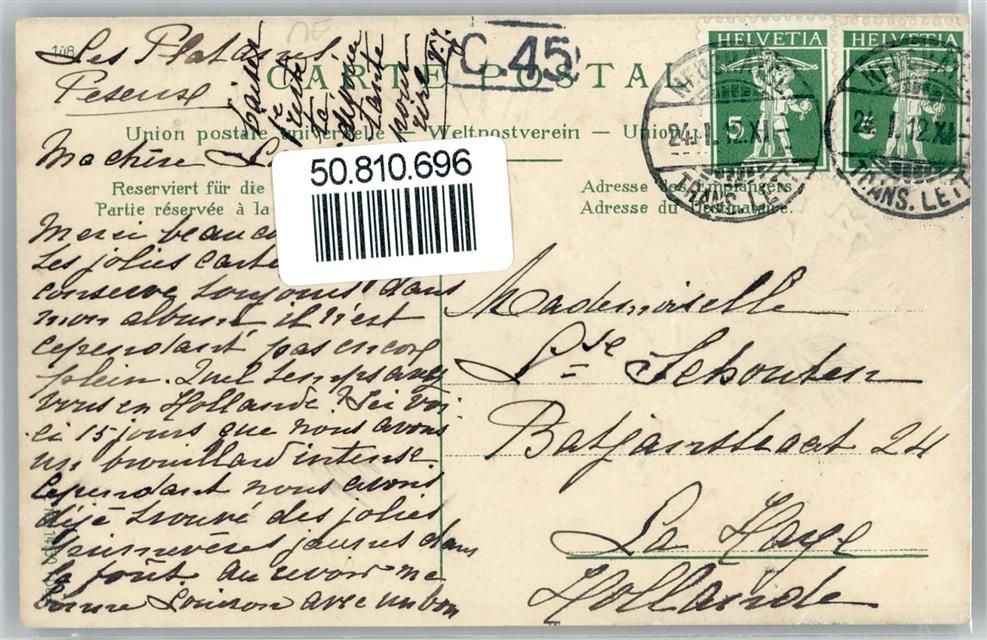 108
Les Platanes
Peseux
C. 45
CARTE POSTAL
Union postale universelle — Weltpostverein — Unio
HELVETIA
HELVETIA
5
24. I. 12. XI
24. I. 12. XI
TRANS. LET
TRANS. LET
Ma chère L
50.810.696
Reserviert für die
Partie réservée à la
Adresse des Empfängers.
Adresse du Destinataire.
Merci beauco
les jolies carte
conserve toujours dans
mon album, il n'est
cependant pas encore
plein. Quel temps avez
vous en Hollande? Ici voi
ci 15 jours que nous avons
un brouillard intense.
Cependant nous avons
déjà trouvé des jolies
primevères jaunes dans
la forêt au revoir ma
bonne Louison avec un bon
baiser
de
ta
dévouée
tante
Mademoiselle
Lse Schouten
Batjanstraat 24
La Haye
Hollande